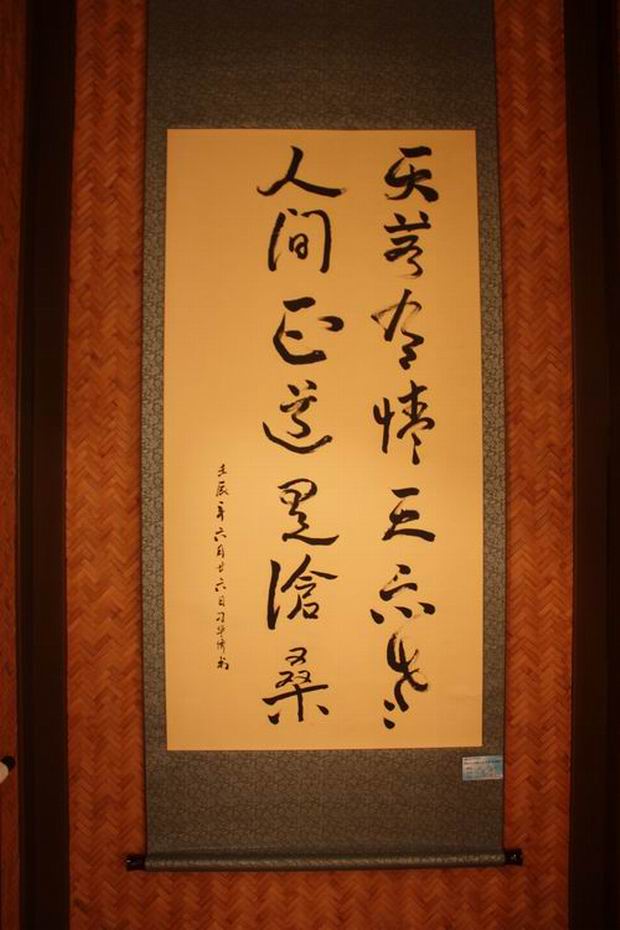 天若有情天亦老
人间正道是滄桑
壬辰年六月廿六日